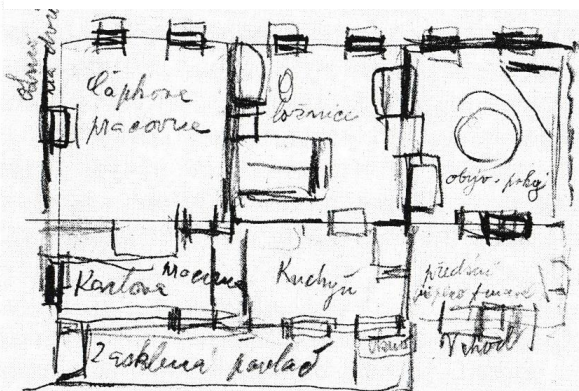 Okno
na dvůr
Čapkova
pracovna
Ložnice
obýv. pokoj
Karlova pracovna
Kuchyň
předsíň
Zasklená pavlač
Vchod